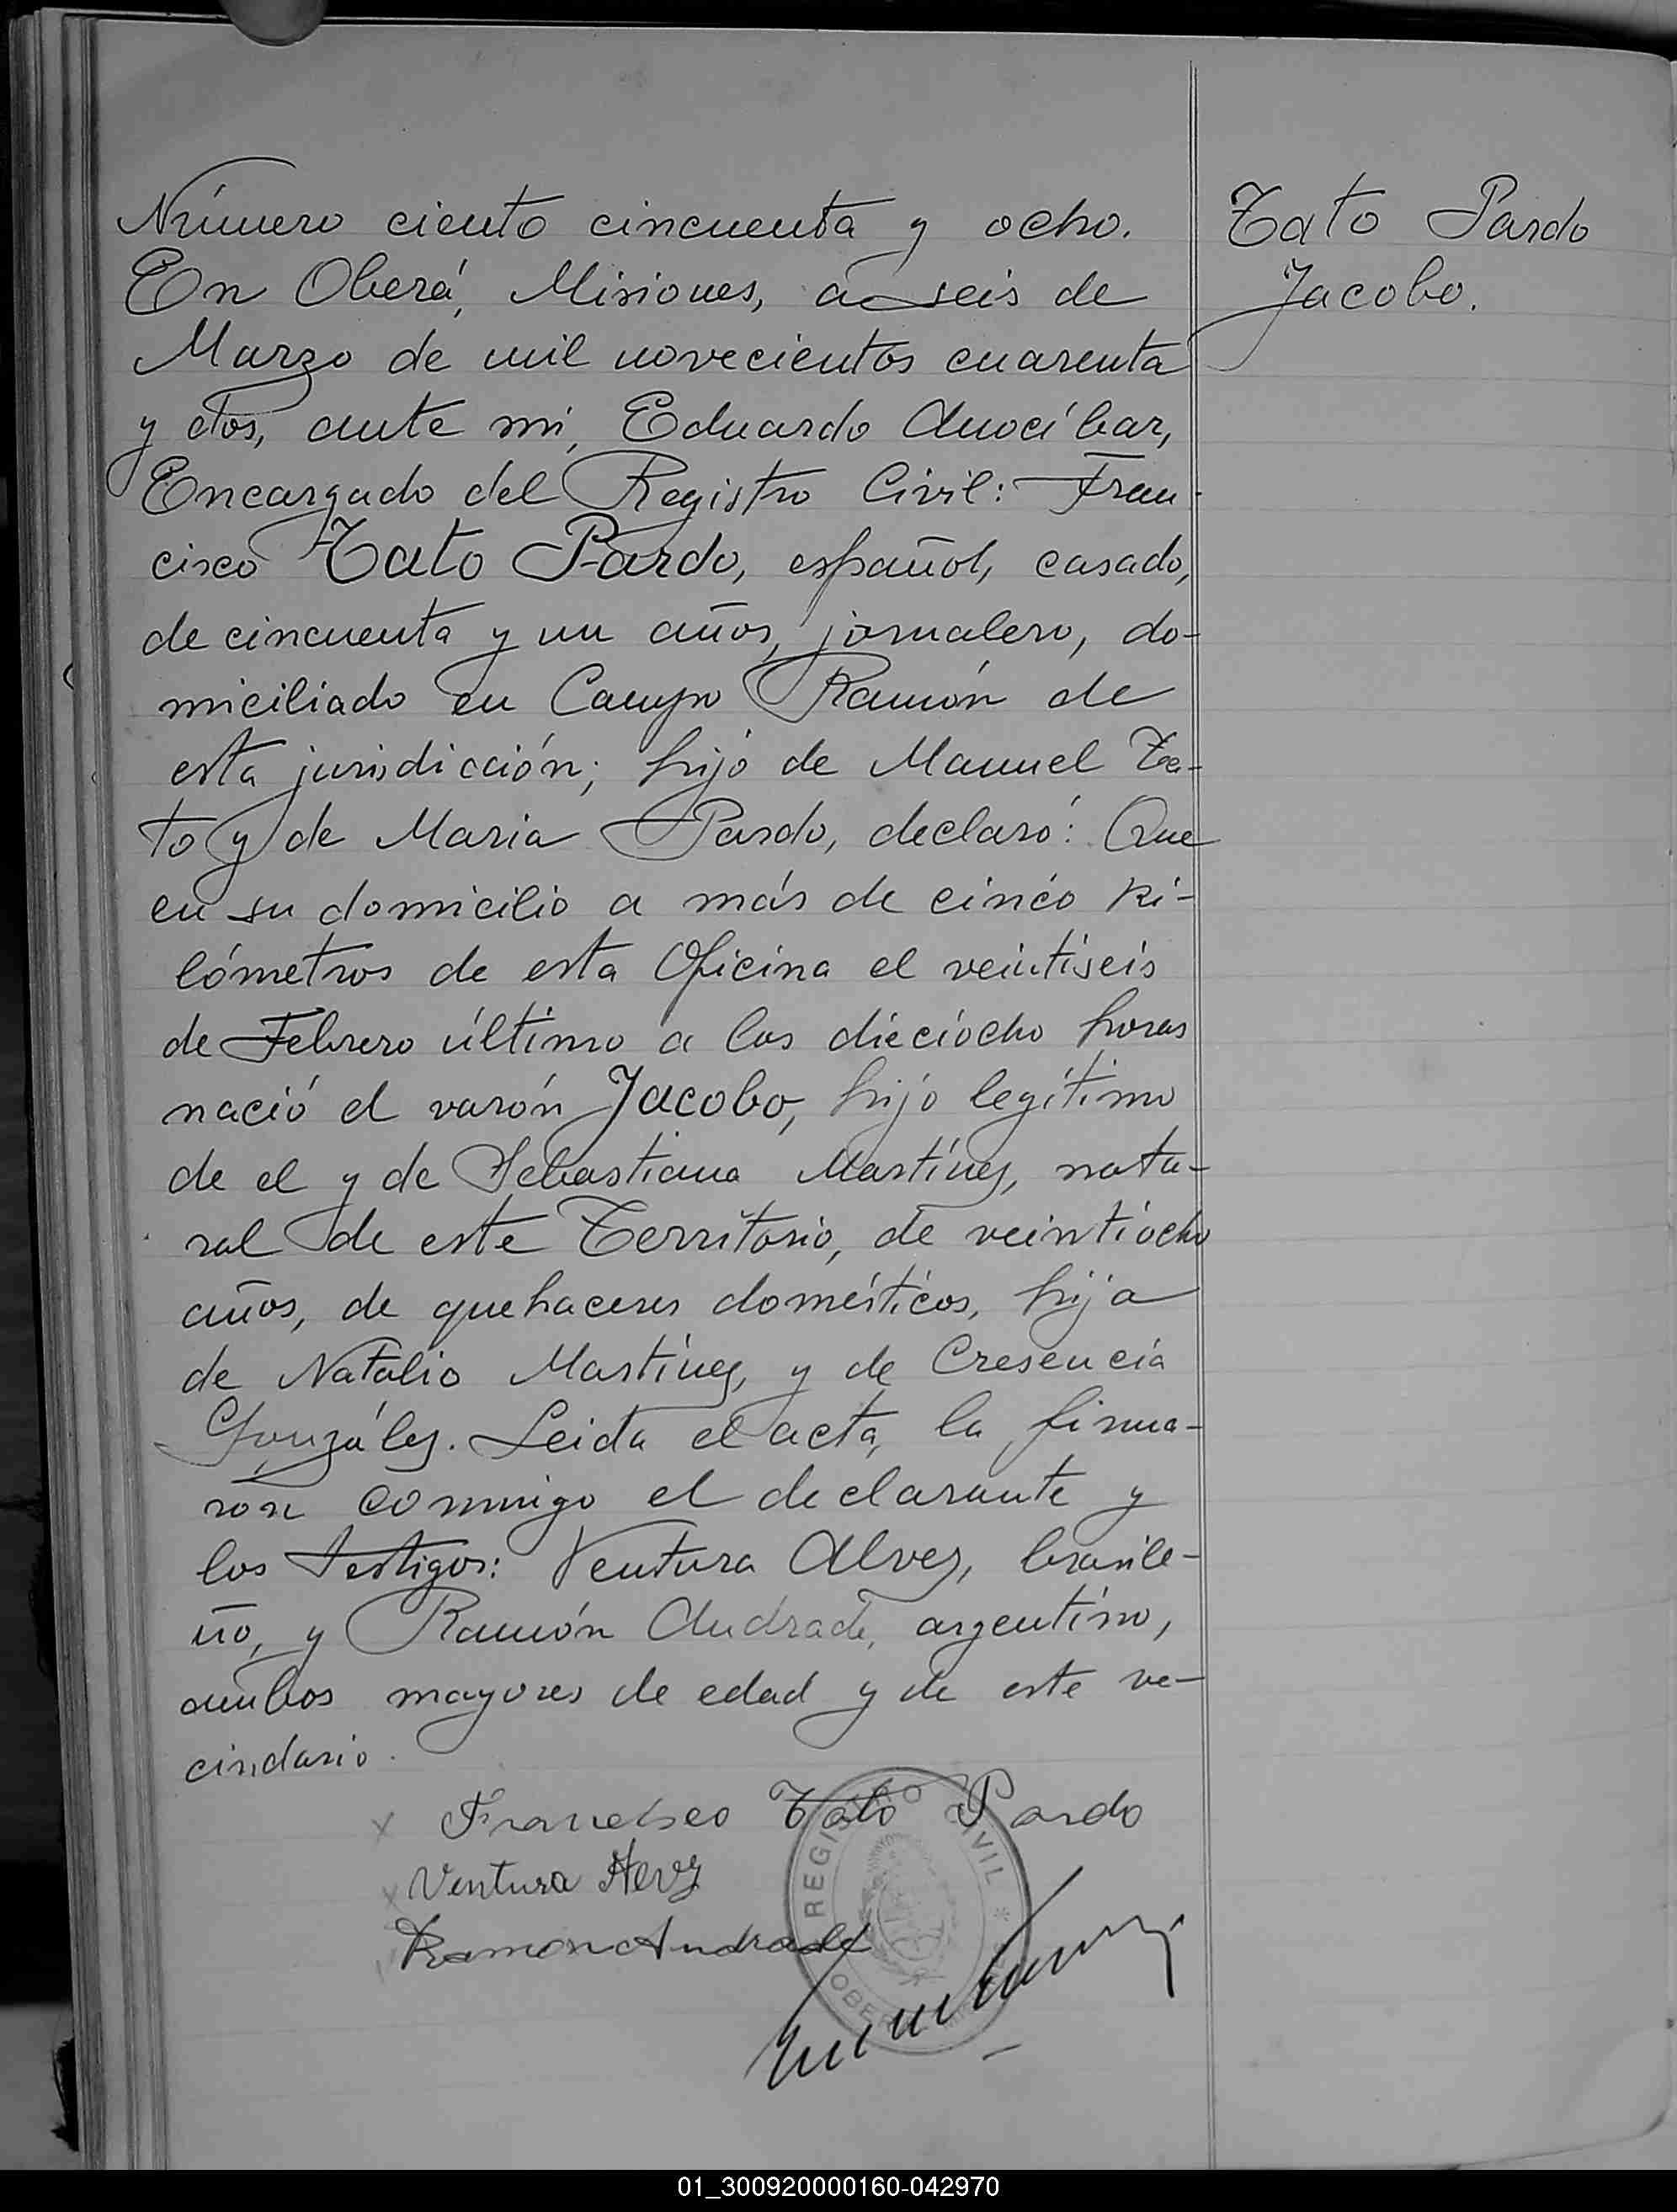 Número ciento cincuenta y ocho.
En Oberá, Misiones, a seis de
Marzo de mil novecientos cuarenta
y dos, ante mí, Eduardo Anocíbar,
Encargado del Registro Civil: Fran-
cisco Tato Pardo, español, casado,
de cincuenta y un años, jornalero, do-
miciliado en Campo Ramón de
esta jurisdicción; hijo de Manuel Ta-
to y de Maria Pardo, declaró: Que
en su domicilio a más de cinco ki-
lómetros de esta Oficina el veintiseis
de Febrero último a las dieciocho horas
nació el varón Jacobo, hijo legítimo
de el y de Sebastiana Martínez, natu-
ral de este Territorio, de veintiocho
años, de quehaceres domésticos, hija
de Natalio Martínez, y de Cresencia
González. Leida el acta, la firma-
ron conmigo el declarante y
los testigos: Ventura Alvez, brasile-
ño, y Ramón Andrade, argentino,
ambos mayores de edad y de este ve-
cindario.
Tato Pardo
Jacobo.
Francisco Tato Pardo
Ventura Alvz
Ramon Andrade
REGISTRO CIVIL
OBERÁ
01_300920000160-042970